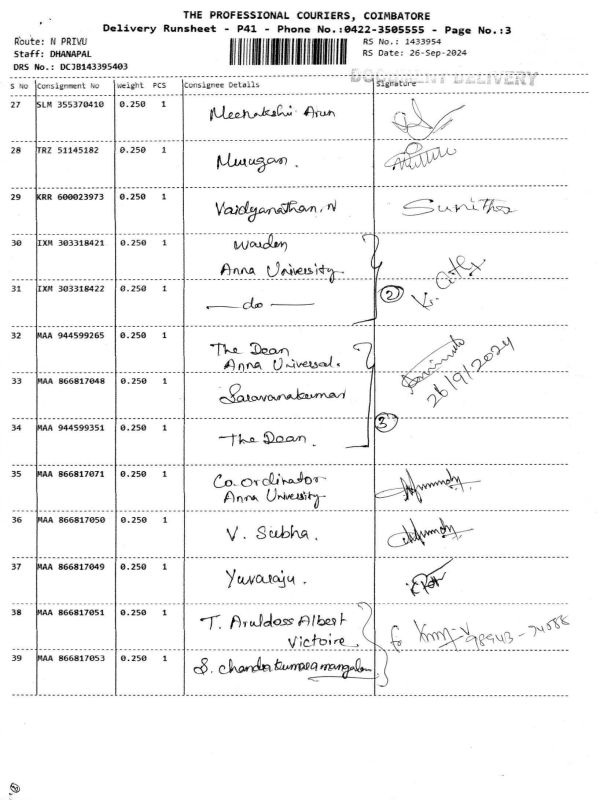 THE PROFESSIONAL COURIERS, COIMBATORE
Delivery Runsheet - P41 - Phone No.:0422-3505555 - Page No.:3
Route: N PRIVU
RS No.: 1433954
Staff: DHANAPAL
RS Date: 26-Sep-2024
DRS No.: DCJB143395403
DOCUMENT DELIVERY
S No Consignment No Weight PCS Consignee Details Signature
27 SLM 355370410 0.250 1 Meenakshi Arun
28 TRZ 51145182 0.250 1 Murugan.
29 KRR 600023973 0.250 1 Vaidyanathan, N Sunitha
30 IXM 303318421 0.250 1 Warden
Anna University
31 IXM 303318422 0.250 1 — do — 2
32 MAA 944599265 0.250 1 The Dean
Anna Universal.
26/9/2024
33 MAA 866817048 0.250 1 Saravanakumar
34 MAA 944599351 0.250 1 The Dean. 3
35 MAA 866817071 0.250 1 Co.ordinator
Anna University
36 MAA 866817050 0.250 1 V. Subha.
37 MAA 866817049 0.250 1 Yuvaraju.
38 MAA 866817051 0.250 1 T. Aruldoss Albert
Victoire
39 MAA 866817053 0.250 1 S. Chandrakumaramangalam